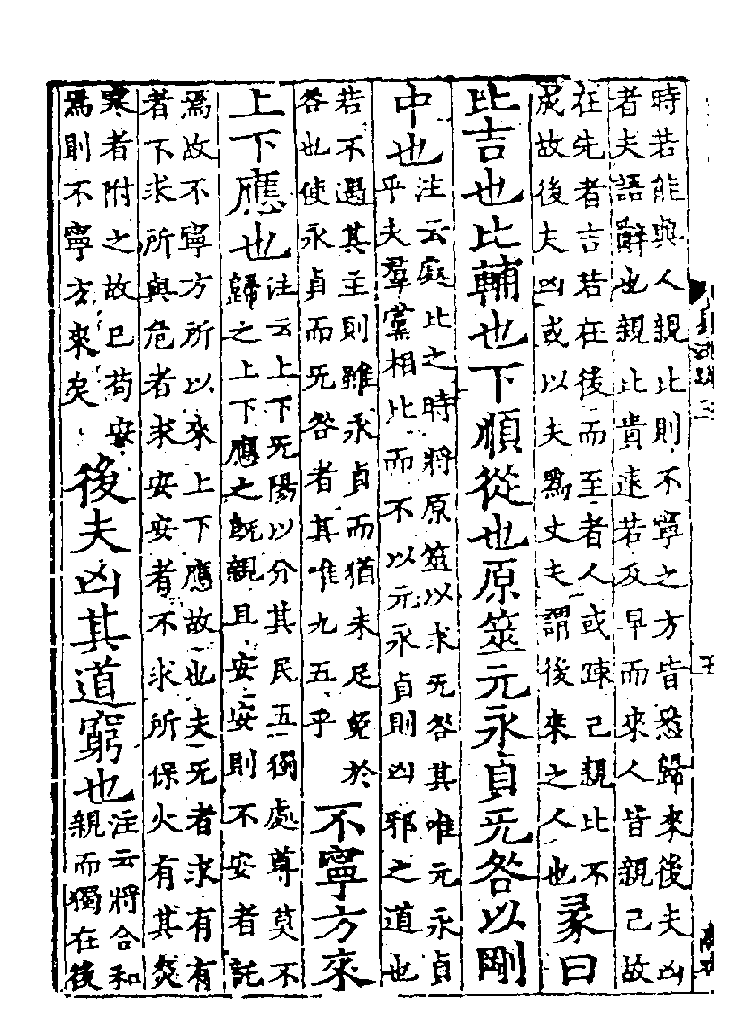 時若能與人親比則不寧之方皆悉歸來後夫凶
者夫語辭也親比貴速若及早而來人皆親己故
在先者吉若在後而至者人或踈己親比不
成故後夫凶或以夫爲丈夫謂後來之人也
彖曰
比吉也比輔也下順從也原筮元永貞无咎以剛
中也
注云處比之時將原筮以求无咎其唯元永貞
乎夫羣黨相比而不以元永貞則凶邪之道也
若不遇其主則雖永貞而猶未足免於
咎也使永貞而无咎者其唯九五乎
不寧方來
上下應也
注云上下无陽以分其民五獨處尊莫不
歸之上下應之既親且安安則不安者託
焉故不寧方所以來上下應故也夫无者求有有
者下求所與危者求安安者不求所保火有其炎
寒者附之故已苟安
焉則不寧方來矣
後夫凶其道窮也
注云將合和
親而獨在後